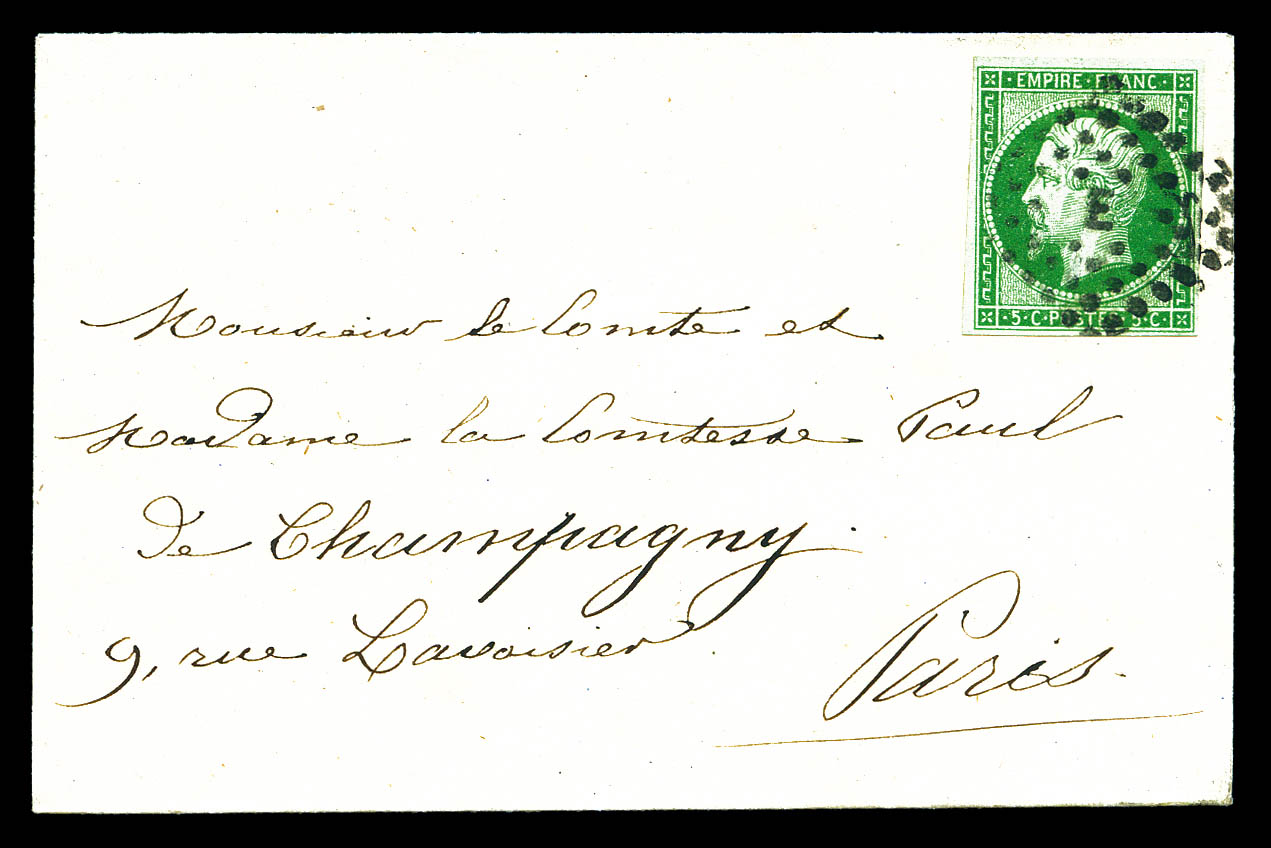 EMPIRE FRANC
E
5·C·POSTES·5·C·
Monsieur le Comte et
Madame la Comtesse Paul
de Champagny.
9, rue Lavoisier.
Paris.